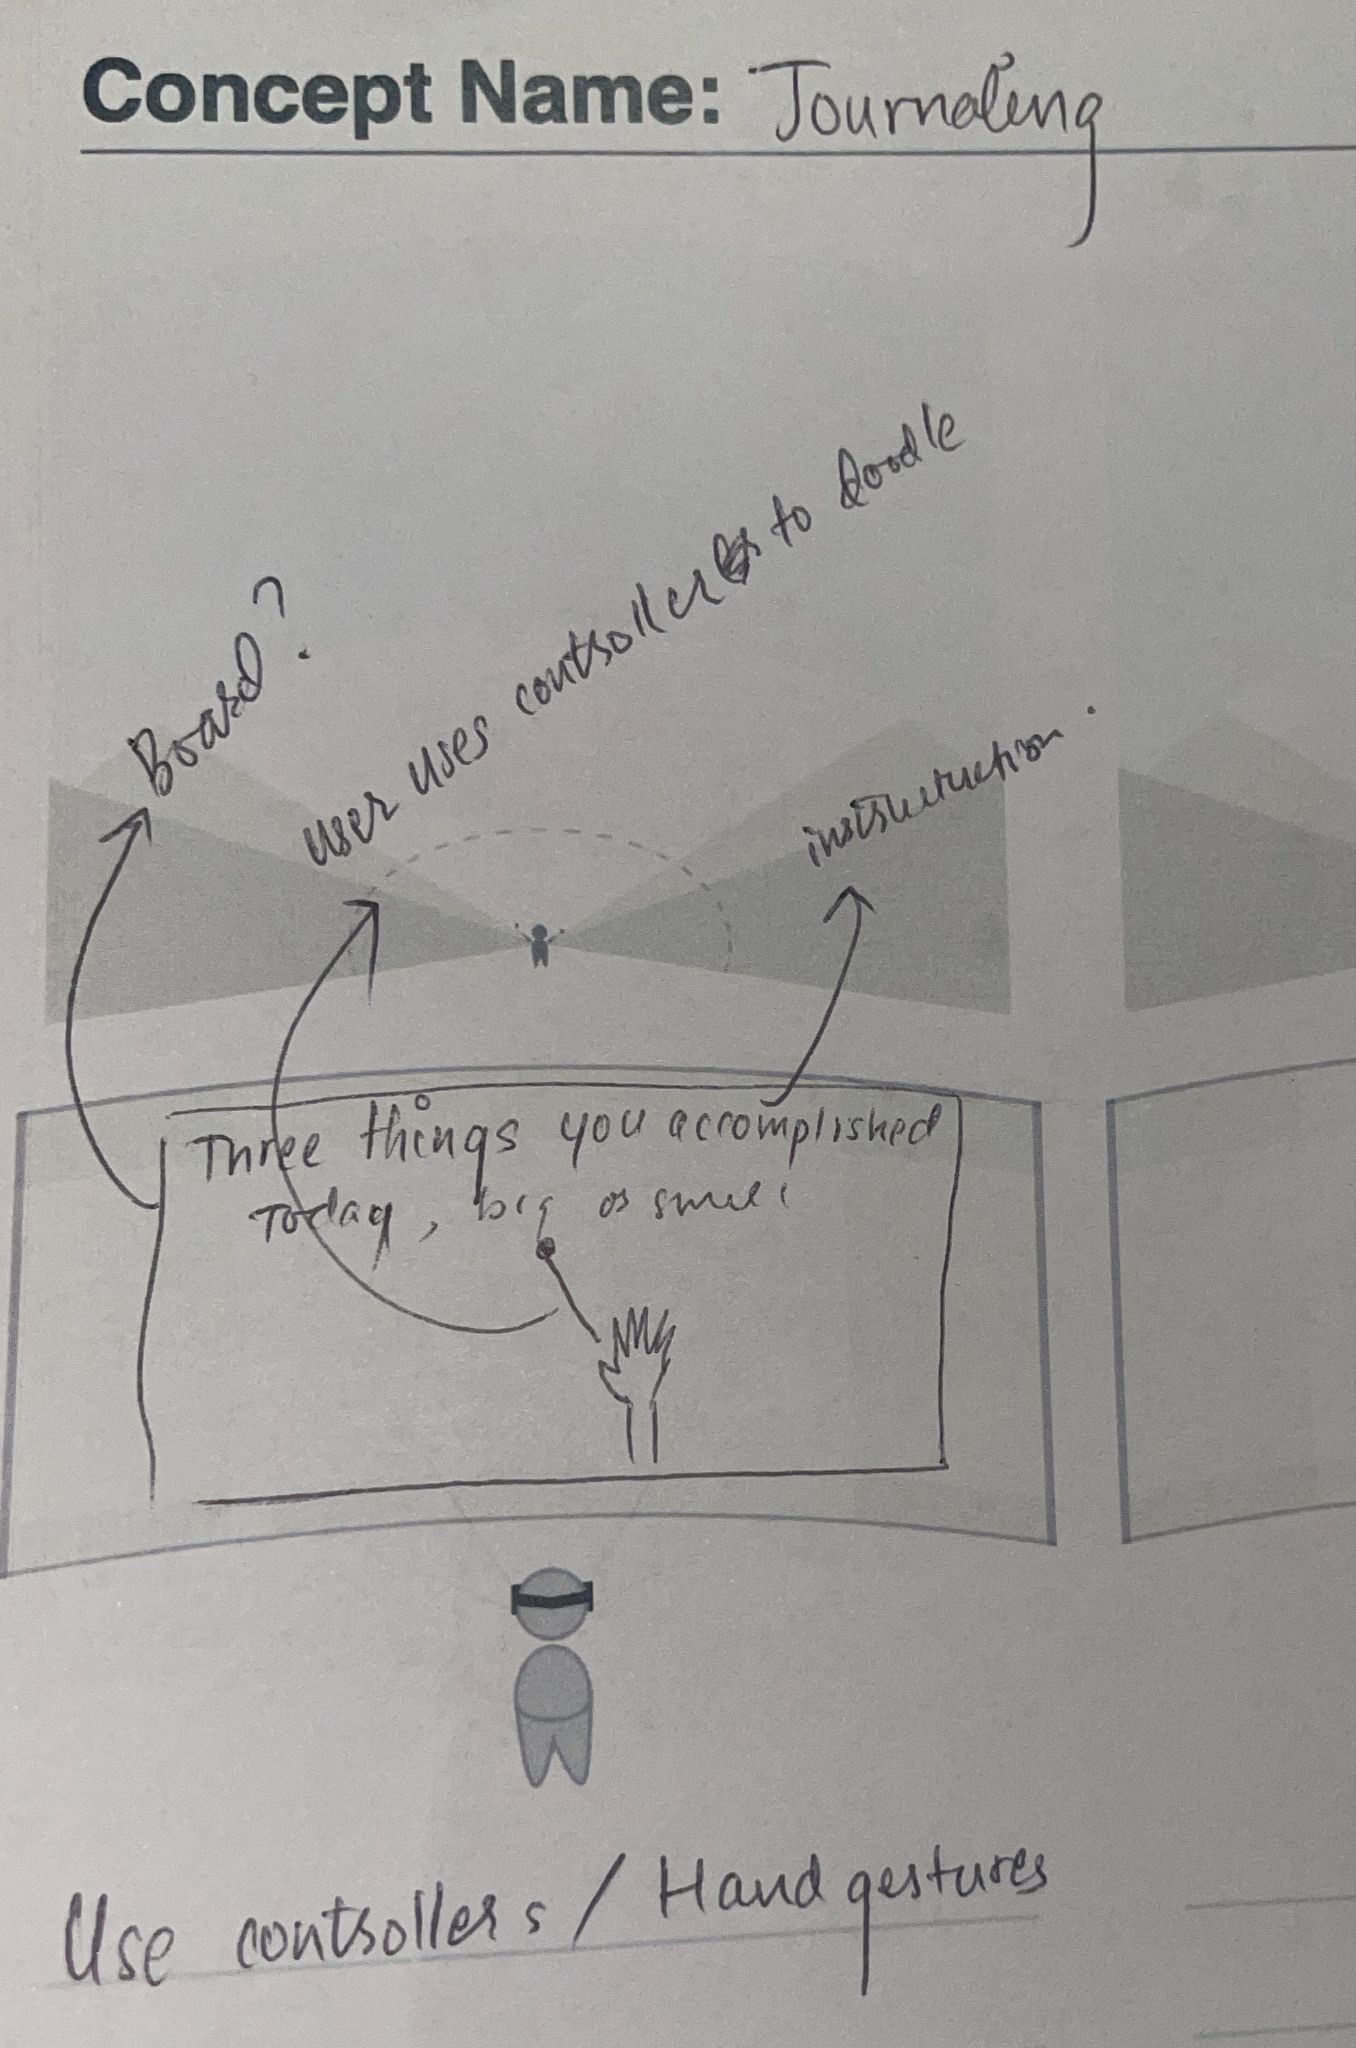 Concept Name: Journaling
Board?
user uses controllers to doodle
instruction.
Three things you accomplished
Today, big or small
Use controllers / Hand gestures